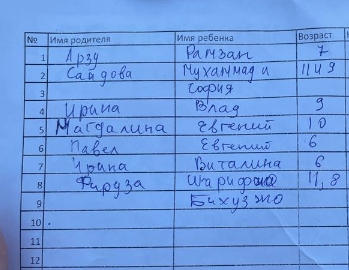 № Имя родителя Имя ребенка Возраст
1 Арзу Рамзан 7
2 Саидова Мухаммад и 11 и 9
3 София
4 Ирина Влад 9
5 Магдалина Евгений 10
6 Павел Евгений 6
7 Ирина Виталина 6
8 Фируза 11, 8
9
10.
11
12